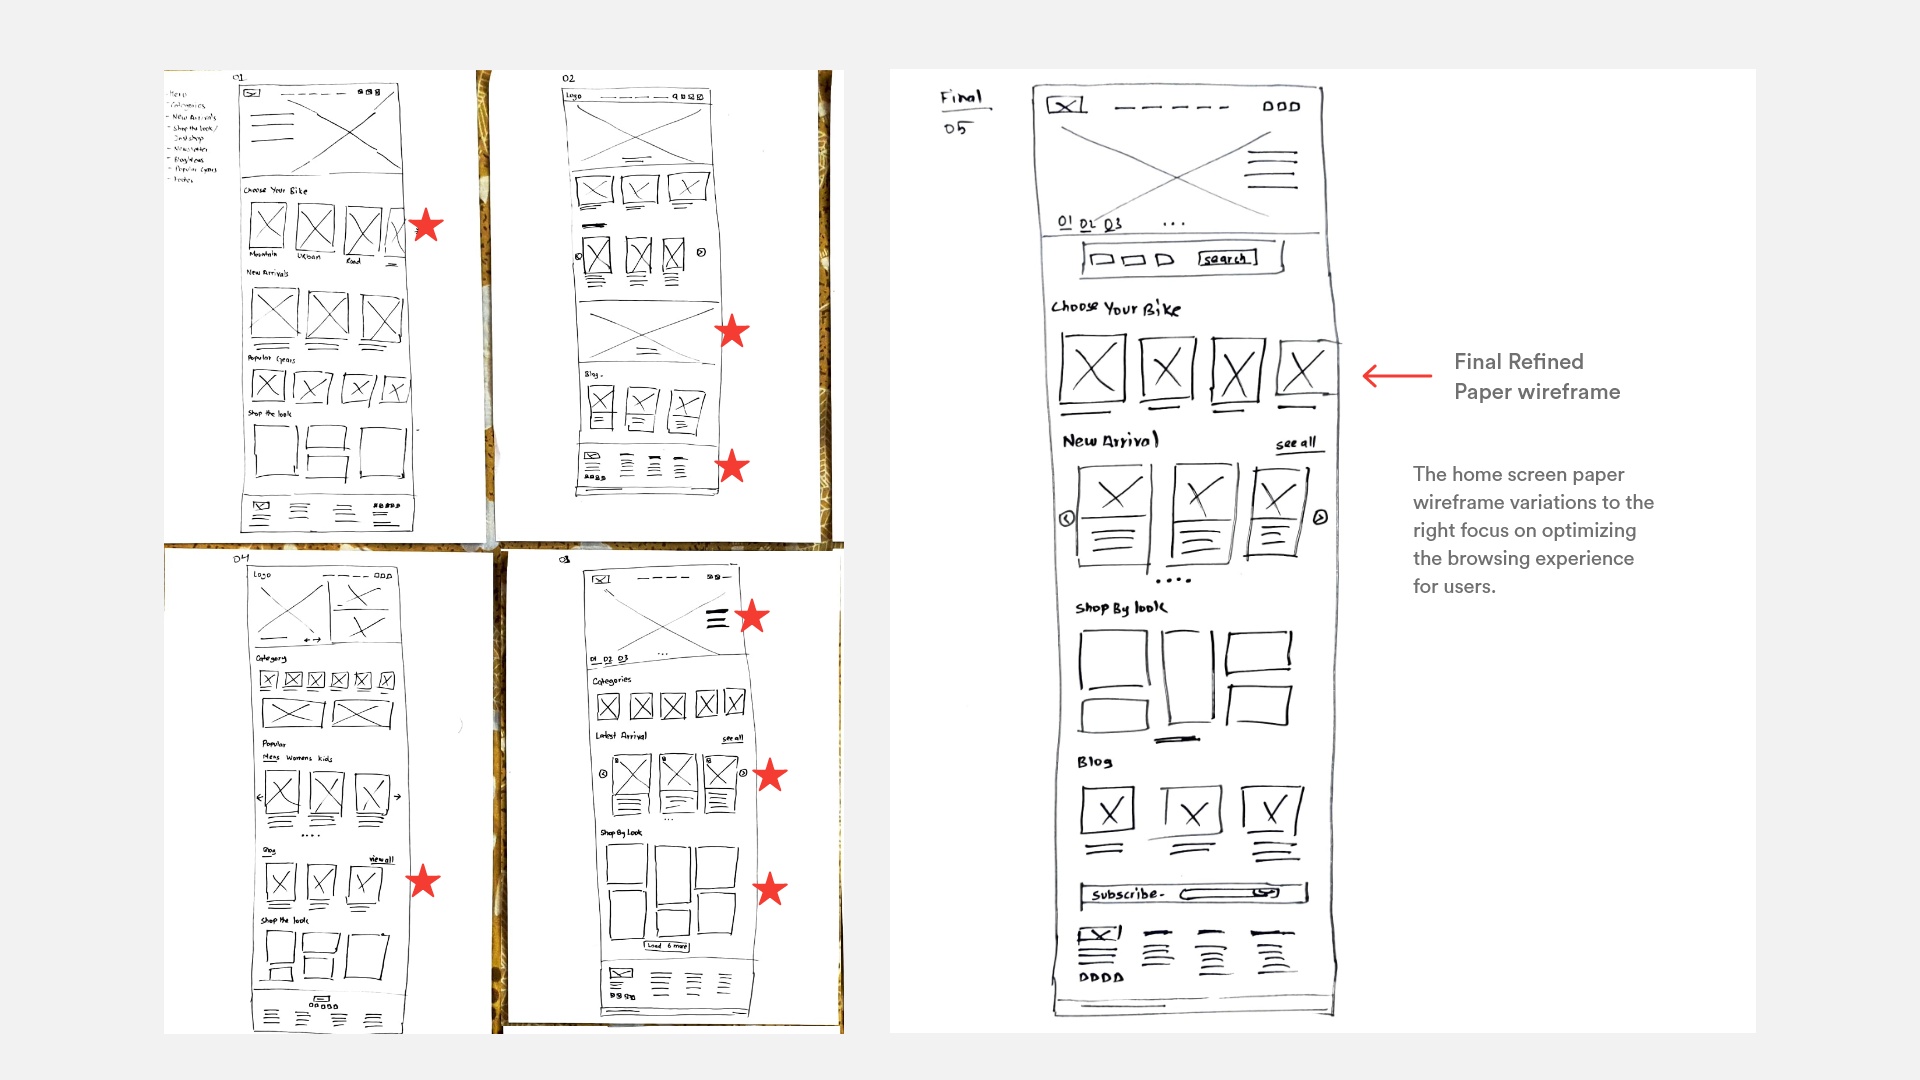 01
- Hero
- Categories
- New Arrivals
- Shop the look /
Inst shop
- Newsletter
- Blog/News
- Popular Gears
- Footer
Choose Your Bike
Mountain
Urban
Road
New Arrivals
Popular Gears
Shop the look
02
Logo
Blog -
04
Logo
Category
Popular
Mens Womens Kids
Blog
view all
Shop the look
03
01 02 03
Categories
Latest Arrival
see all
Shop By Look
Load 6 more
Final
05
01 02 03
search
Choose Your Bike
New Arrival
see all
Shop By look
Blog
Subscribe-
Final Refined
Paper wireframe
The home screen paper
wireframe variations to the
right focus on optimizing
the browsing experience
for users.